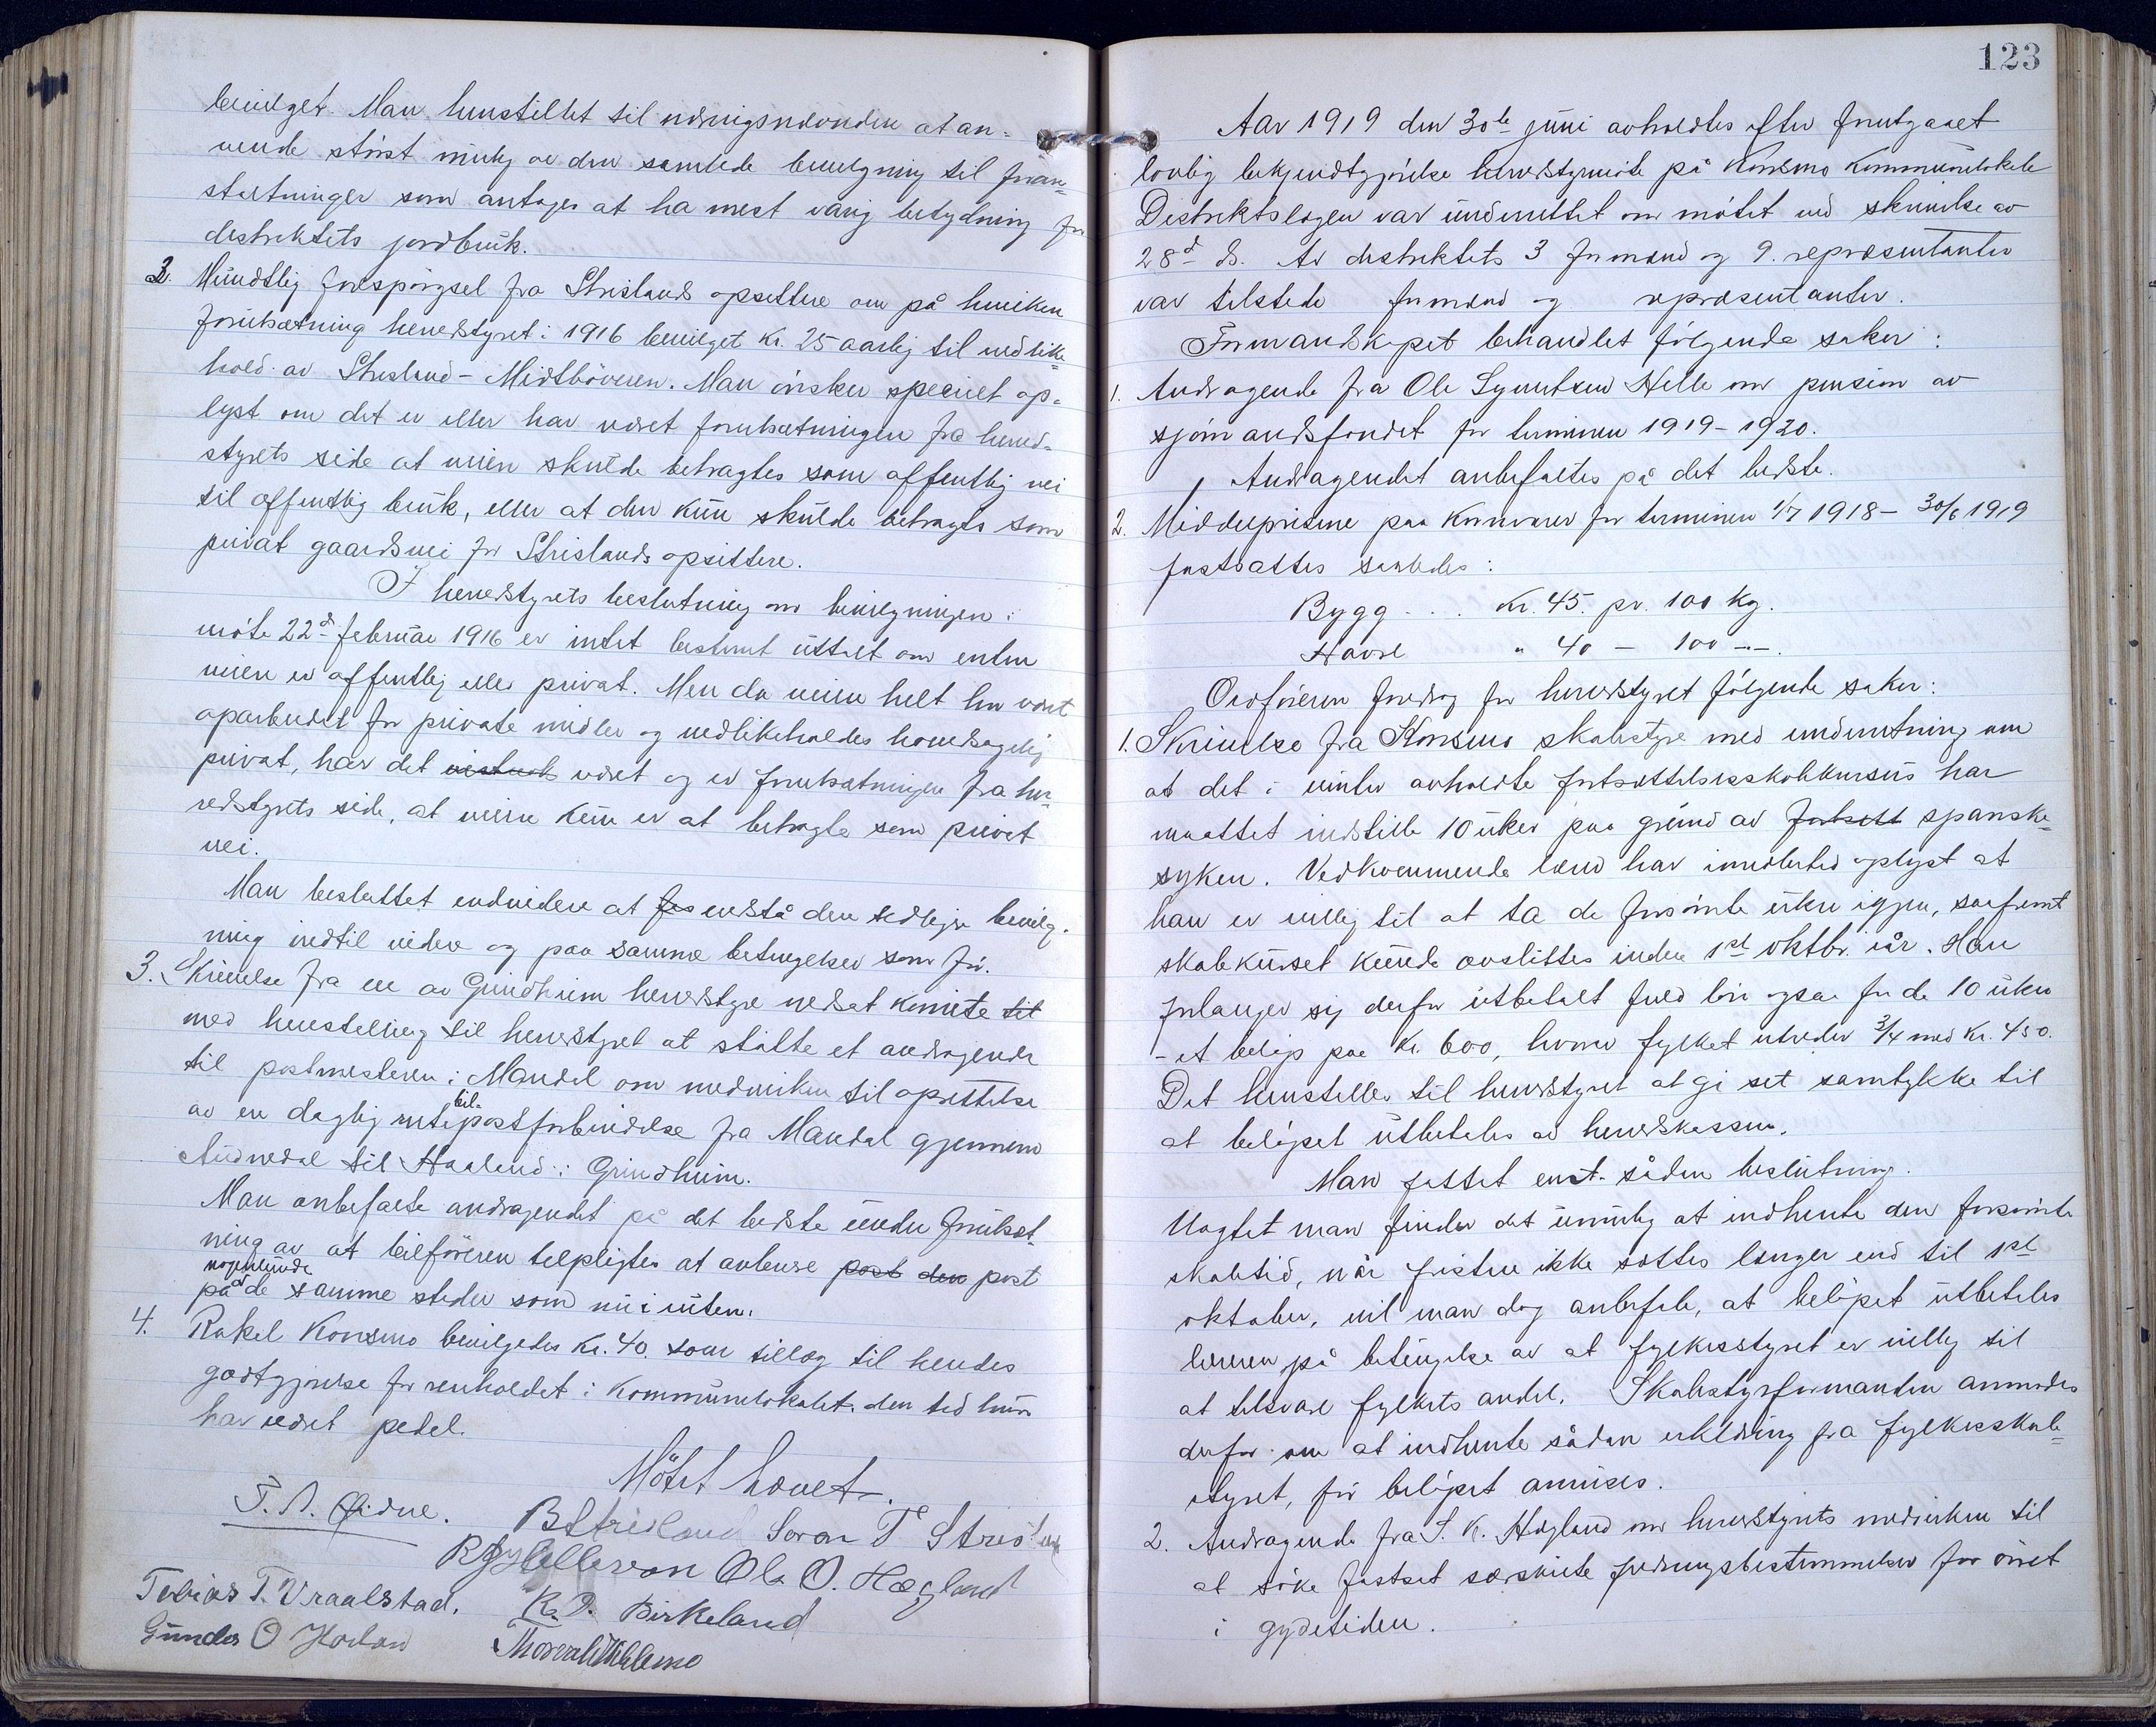 bevilget. Man henstillet til nævnden at an-
vende störst mulig av den samlede bevilgning til foran-
staltninger som antages at ha mest varig betydning for
distriktets jordbruk.
2. Mundtlig forespörgsel fra Strislands opsittere om på hvilken
forutsætning herredstyret i 1916 bevilget Kr. 25 aarlig til vedlike-
hold av Strisland - Midtböveien. Man önsker specielt op-
lyst om det er eller har været forutsætningen fra herred-
styrets side at veien skulde betragtes som offentlig vei
til offentlig bruk, eller at den kun skulde betragtes som
privat gaardsvei for Strislands opsittere.
I herredstyrets beslutning om bevilgningen i
möte 22d februar 1916 er intet bestemt uttalt om enten
veien er offentlig eller privat. Men da veien helt har vært
oparbeidet for private midler og vedlikeholdes hovedsagelig
privat, har det været og er forutsætningen fra her-
redstyrets side, at veien kun er at betragte som privat
vei.
Man besluttet endvidere at la enstå den tidligere bevilg-
ning indtil videre og paa samme betingelser som för.
3. Skrivelse fra en av Grindheim herredstyre nedsat komite
med henstilling til herredstyret at stötte et andragende
til postmesteren i Mandal om medvirken til oprettelse
av en daglig bil-
postforbindelse fra Mandal gjennem
Audnedal til Haaland i Grindheim.
Man anbefalte andragendet på det bedste under forutsæt-
ning av at bilföreren tilpligtes at avlevere post den post
nogenlunde
på de samme steder som nu i ruten.
4. Rakel Konsmo bevilgedes Kr. 40. som tillæg til hendes
godtgjörelse for renholdet i kommunelokalet. den tid hun
har vært pedel.
Mötet hævet.
T. A. Øidne. B Strisland Soran T Strisland
R Gyllellevson Ole O. Hægland
Tobias T. Vraalstad. K. O. Birkeland
Gunder O Hodland

123
Aar 1919 den 30te juni avholdtes efter forutgaaet
lovlig bekjendtgjörelse herredstyremöte på Konsmo Kommunelokale
Distriktslægen var underrettet om mötet ved skrivelse av
28d ds. Av distriktets 3 formænd og 9. repræsentanter
var tilstede formænd og repræsentanter.
Formandskapet behandlet fölgende saker:
1. Andragende fra Ole Syvertsen Helle om pension av
sjömandsfondet for terminen 1919 - 1920.
Andragendet anbefaltes på det bedste.
2. Middelprisene paa Kornvarer for terminen 1/7 1918 - 30/6 1919
fastsattes saaledes:
Bygg . . . Kr. 45. pr. 100 kg.
Havre " 40 - 100 -.-.
Ordföreren foredrog for herredstyret fölgende saker:
1. Skrivelse fra Konsmo skolestyre med underretning om
at det i vinter avholdte fortsættelsesskolekursus har
maattet indstille 10 uker paa grund av fortsett spanske-
syken. Vedkommende lærer har imidlertid oplyst at
han er villig til at ta de forsömte uker igjen, saafremt
skolekurset kunde avsluttes inden 1st oktbr. iår. Han
forlanger sig derfor utbetalt fuld lön ogsaa for de 10 uker
- et belöp paa Kr. 600, hvorav fylket utreder 3/4 med Kr. 450.
Det henstilles til herredstyret at gi sit samtykke til
at belöpet utbetales av herredskassen.
Man fattet enst. sådan beslutning.
Uagtet man finder det umulig at indhente den forsömte
skoletid, når fristen ikke sættes længer end til 1st
oktober, vil man dog anbefale, at belöpet utbetales
læreren på betingelse av at fylkesstyret er villig til
at tilsvare fylkets andel. Skolestyreformanden anmodes
derfor om at indhente sådan erklæring fra fylkesskole-
styret, för belöpet anvises.
2. Andragende fra S. K. Hægland om herredstyrets medvirken til
at söke fastsat særskilte fredningsbestemmelser for örret
i gydetiden.